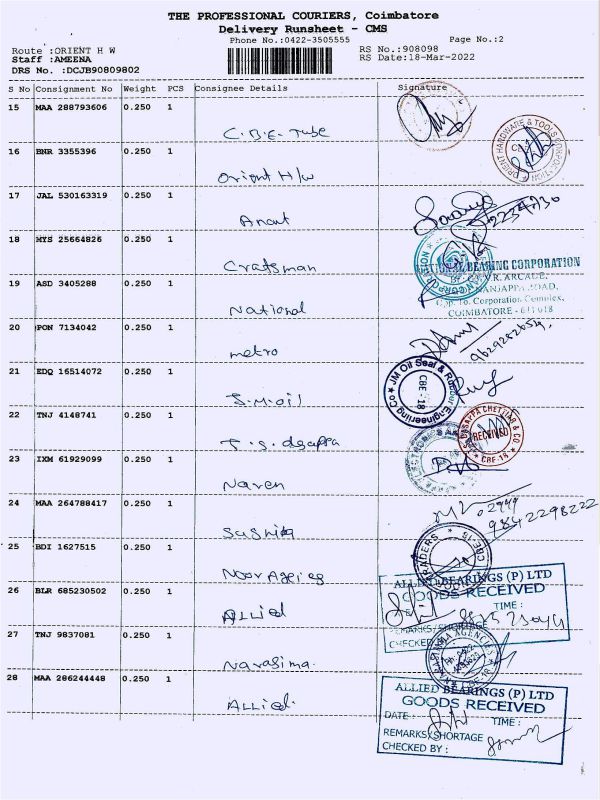 THE PROFESSIONAL COURIERS, Coimbatore
Delivery Runsheet - CMS
Phone No.:0422-3505555 Page No.:2
Route :ORIENT H W RS No.:908098
Staff :AMEENA RS Date:18-Mar-2022
DRS No. :DCJB90809802
S No Consignment No Weight PCS Consignee Details Signature
15 MAA 288793606 0.250 1
C.B.E. Tube
16 BNR 3355396 0.250 1
ORIENT HARDWARE & TOOLS
Orient H/W
17 JAL 530163319 0.250 1
18 MYS 25664826 0.250 1
Craftsman
NATIONAL BEARING CORPORATION
V.R. ARCADE,
19 ASD 3405288 0.250 1
NANJAPPA ROAD,
Opp. To. Corporation Complex,
COIMBATORE - 641 018
National
20 PON 7134042 0.250 1
metro
21 EDQ 16514072 1 0.250
JM Oil Seal & Rubber Engineering Co
CBE - 18
J.M.oil
22 TNJ 4148741 0.250 1
CHETTIAR & CO.
RECEIVED
CBE-18
23 IXM 61929099 0.250 1
Naren
24 MAA 264788417 0.250 1
9842298222
25 BDI 1627515 0.250 1
TRADERS
CBE-18
Noor Agencies
26 BLR 685230502 0.250 1
ALLIED BEARINGS (P) LTD
GOODS RECEIVED
TIME :
REMARKS/SHORTAGE
CHECKED
ALLied
27 TNJ 9837081 0.250 1
AGENCIES
Narasima.
28 MAA 286244448 0.250 1
ALLIED BEARINGS (P) LTD
GOODS RECEIVED
ALLied.
DATE : TIME :
REMARKS/SHORTAGE
CHECKED BY :